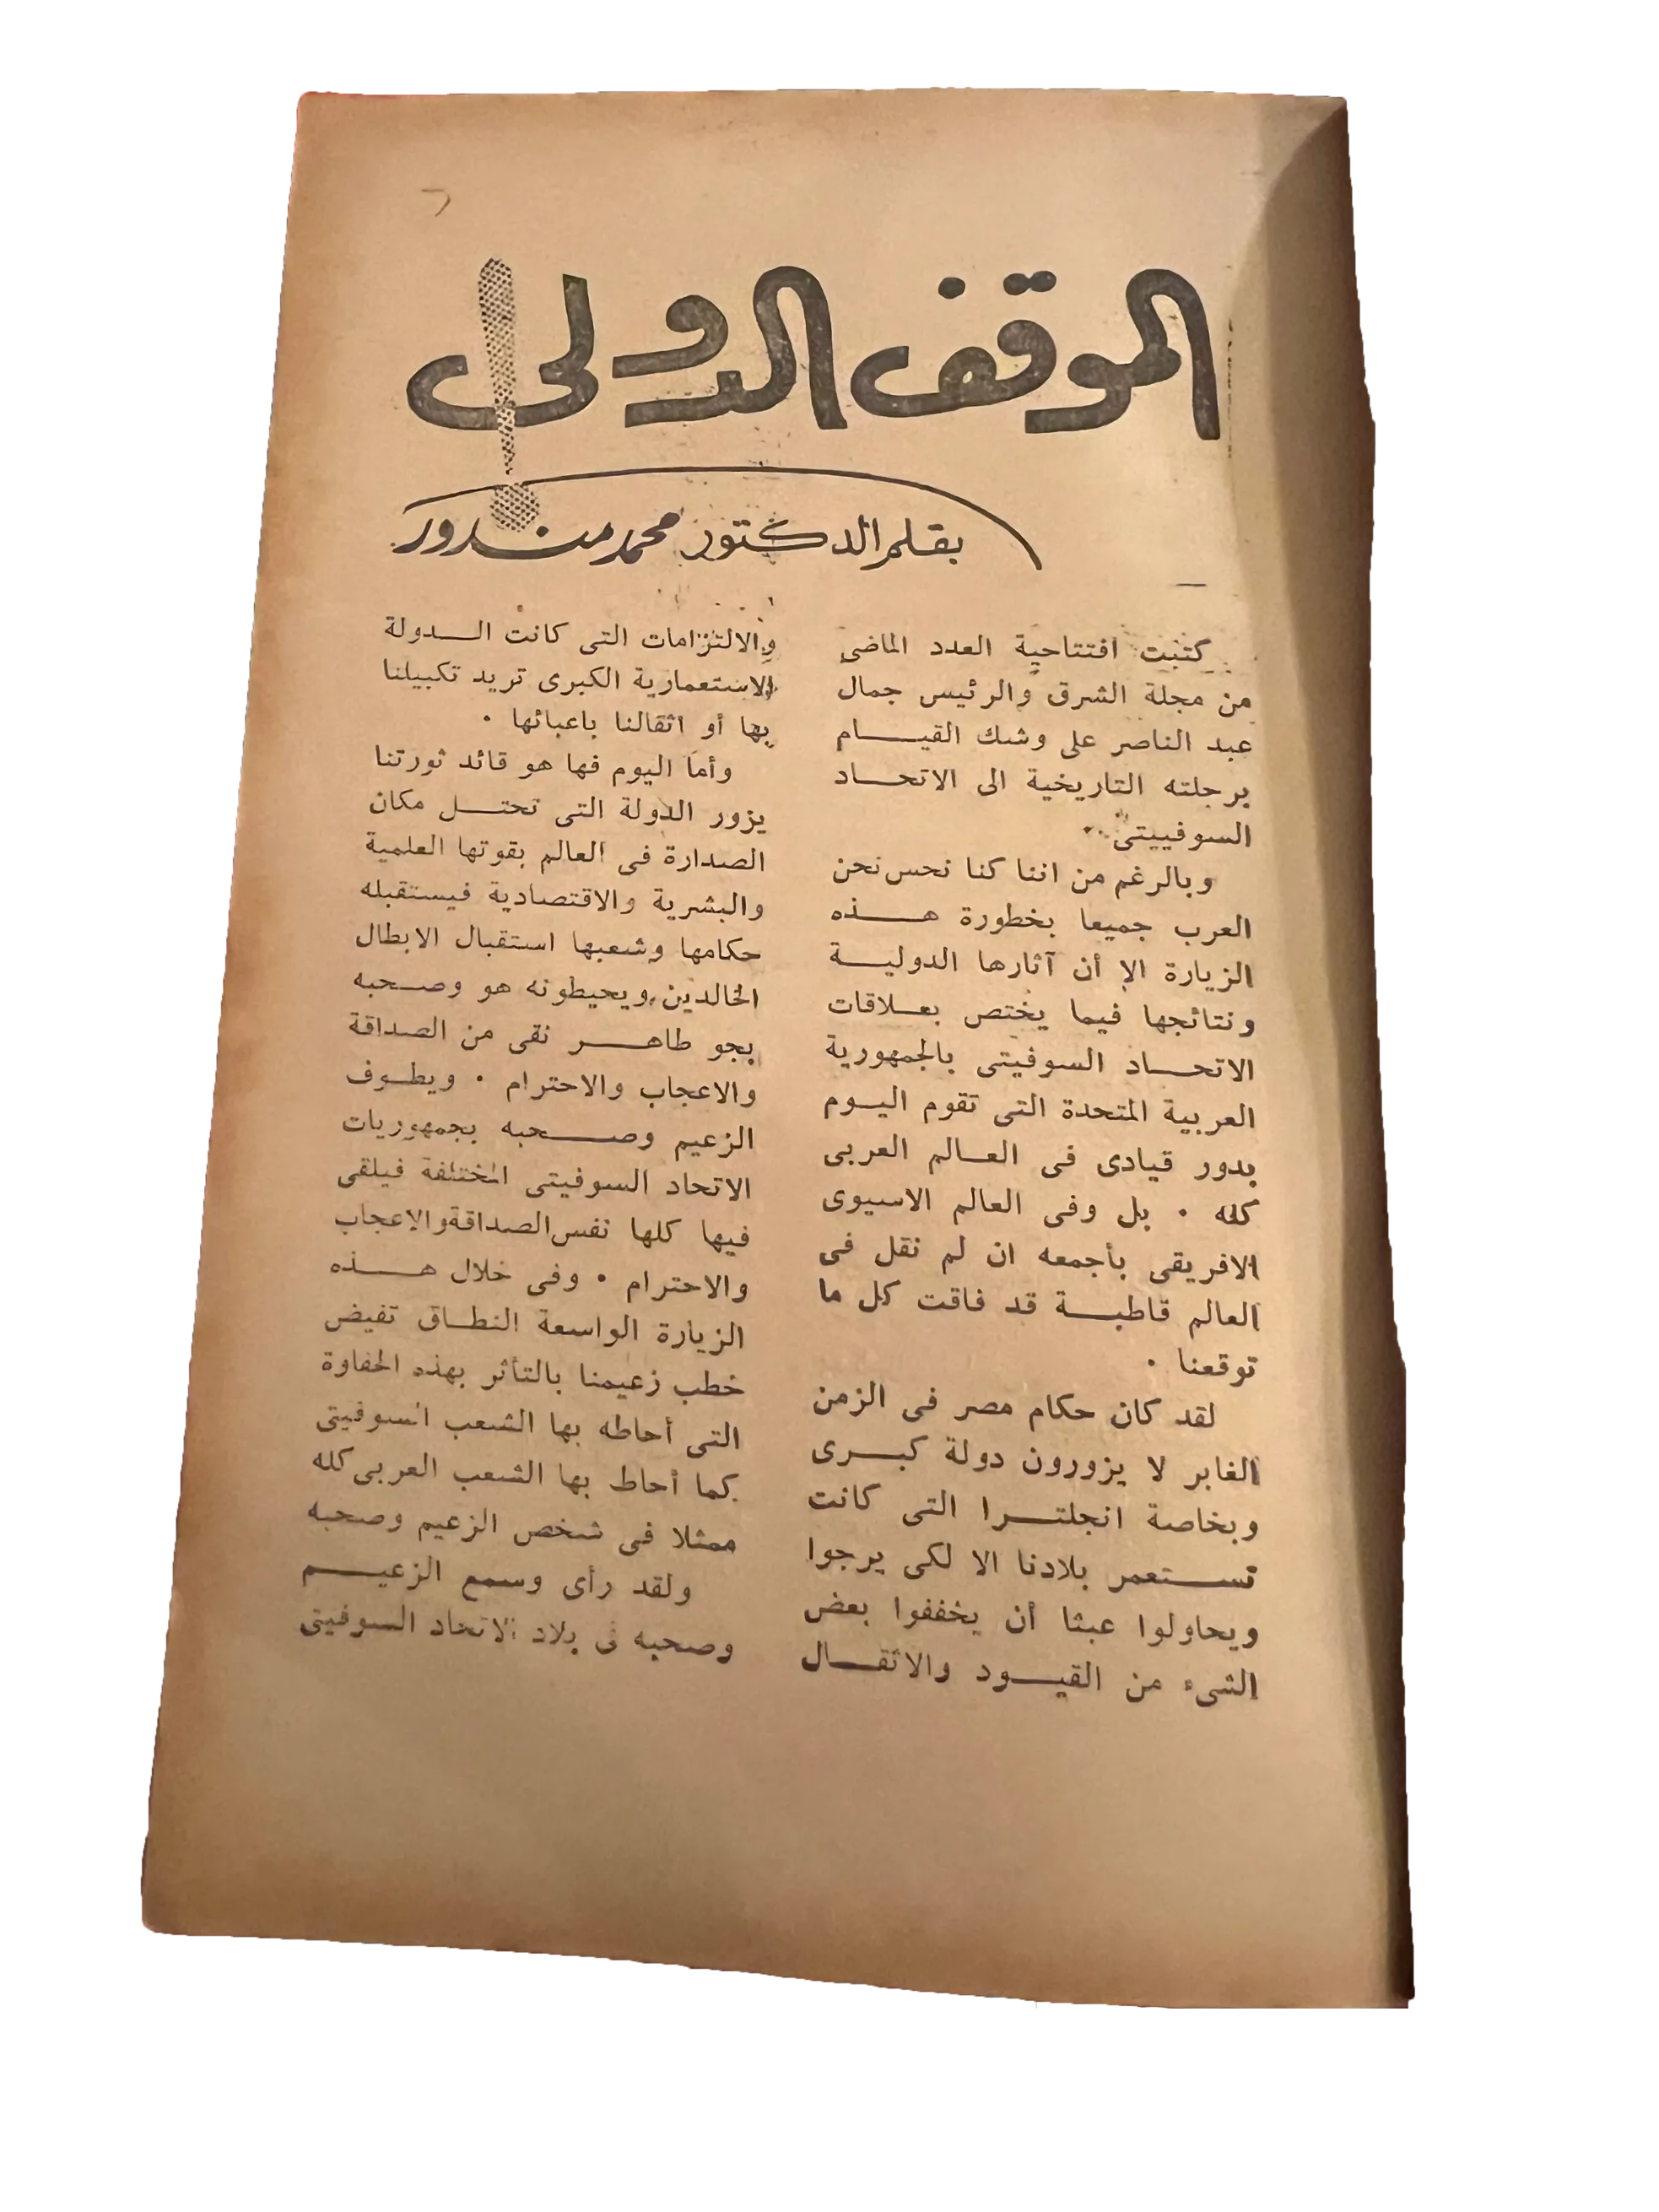 الموقف الدولى !
بقلم الدكتور محمد مندور
كتبت افتتاحية العدد الماضى
من مجلة الشرق والرئيس جمال
عبد الناصر على وشك القيام
برحلته التاريخية الى الاتحاد
السوفييتى ..
وبالرغم من اننا كنا نحس نحن
العرب جميعا بخطورة هذه
الزيارة الا أن آثارها الدولية
ونتائجها فيما يختص بعلاقات
الاتحاد السوفيتى بالجمهورية
العربية المتحدة التى تقوم اليوم
بدور قيادى فى العالم العربى
كله . بل وفى العالم الاسيوى
الافريقى بأجمعه ان لم نقل فى
العالم قاطبة قد فاقت كل ما
توقعنا .
لقد كان حكام مصر فى الزمن
الغابر لا يزورون دولة كبرى
وبخاصة انجلترا التى كانت
تستعمر بلادنا الا لكى يرجوا
ويحاولوا عبثا أن يخففوا بعض
الشىء من القيود والاثقال
والالتزامات التى كانت الدولة
الاستعمارية الكبرى تريد تكبيلنا
بها أو اثقالنا باعبائها .
وأما اليوم فها هو قائد ثورتنا
يزور الدولة التى تحتل مكان
الصدارة فى العالم بقوتها العلمية
والبشرية والاقتصادية فيستقبله
حكامها وشعبها استقبال الابطال
الخالدين ويحيطونه هو وصحبه
بجو طاهر نقى من الصداقة
والاعجاب والاحترام . ويطوف
الزعيم وصحبه بجمهوريات
الاتحاد السوفيتى المختلفة فيلقى
فيها كلها نفس الصداقة والاعجاب
والاحترام . وفى خلال هذه
الزيارة الواسعة النطاق تفيض
خطب زعيمنا بالتأثر بهذه الحفاوة
التى أحاطه بها الشعب السوفيتى
كما أحاط بها الشعب العربى كله
ممثلا فى شخص الزعيم وصحبه
ولقد رأى وسمع الزعيم
وصحبه فى بلاد الاتحاد السوفيتى